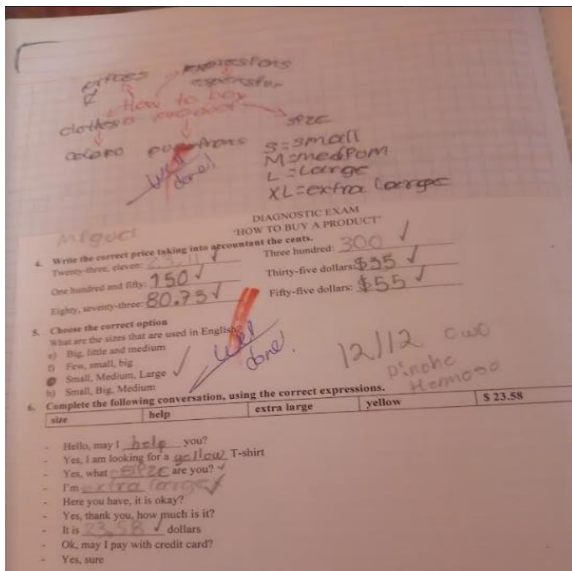 prices expressions
How to buy
clothes a product size
S=small
M=medium
L=Large
XL=extra large
well done!
DIAGNOSTIC EXAM
'HOW TO BUY A PRODUCT'
Miguel
4. Write the correct price taking into accountant the cents.
Twenty-three, eleven: 23.11 Three hundred: 300
One hundred and fifty: 150 Thirty-five dollars: $35
Eighty, seventy-three: 80.75 Fifty-five dollars: $55
5. Choose the correct option
What are the sizes that are used in English?
e) Big, little and medium
f) Few, small, big
Small, Medium, Large
h) Small, Big, Medium
well done!
12/12 owo
Pinche
Hermoso
6. Complete the following conversation, using the correct expressions.
size help extra large yellow $ 23.58
- Hello, may I help you?
- Yes, I am looking for a yellow T-shirt
- Yes, what size are you?
- I'm extra large
- Here you have, it is okay?
- Yes, thank you, how much is it?
- It is 23.58 dollars
- Ok, may I pay with credit card?
- Yes, sure